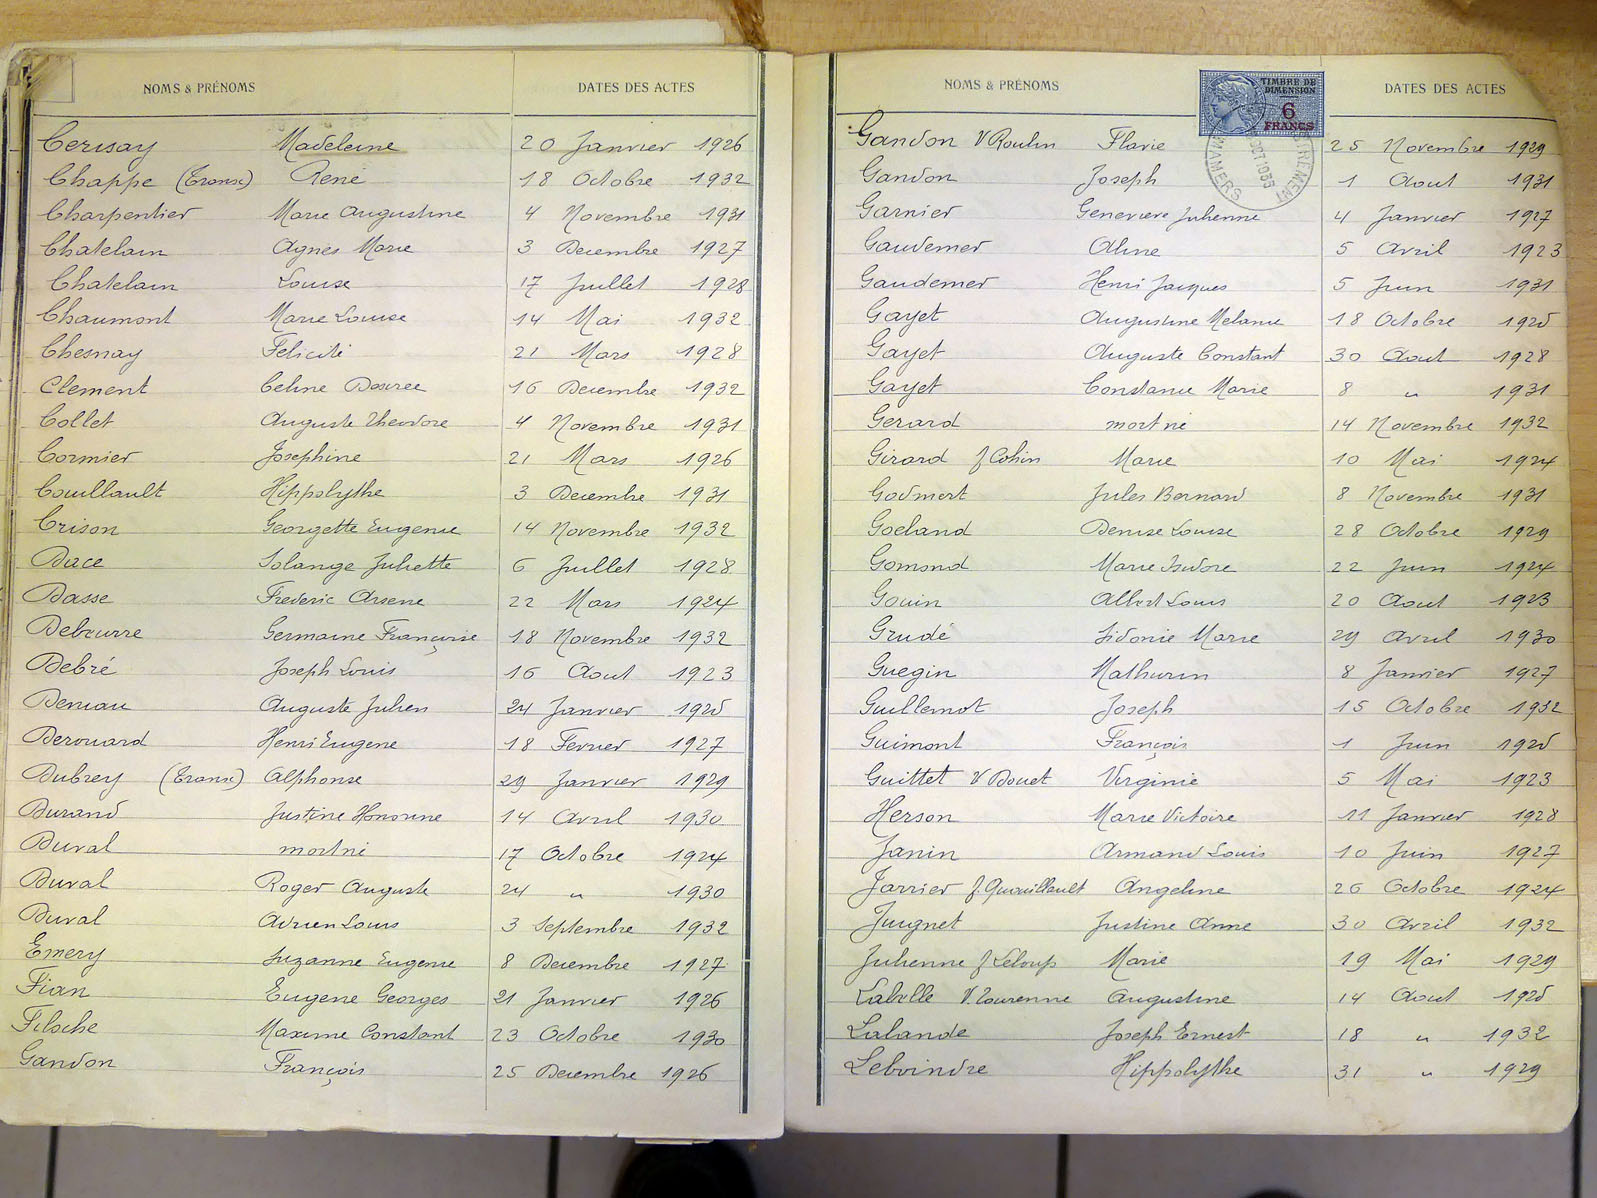 NOMS & PRÉNOMS DATES DES ACTES
Cerisay Madeleine 20 Janvier 1926
Chappe (Transc) René 18 Octobre 1932
Charpentier Marie Augustine 4 Novembre 1931
Chatelain Agnes Marie 3 Decembre 1927
Chatelain Louise 17 Juillet 1928
Chaumont Marie Louise 14 Mai 1932
Chesnay Felicité 21 Mars 1928
Clement Celine Desiree 16 Decembre 1932
Collet Auguste Theodore 4 Novembre 1931
Cormier Josephine 21 Mars 1926
Couillault Hippolythe 3 Decembre 1931
Crison Georgette Eugenie 14 Novembre 1932
Dace Solange Juliette 6 Juillet 1928
Dasse Frederic Arsene 22 Mars 1924
Debeurre Germaine Françoise 18 Novembre 1932
Debré Joseph Louis 16 Aout 1923
Deniau Auguste Julien 24 Janvier 1925
Derouard Henri Eugene 18 Fevrier 1927
Dubrey (Transc) Alphonse 29 Janvier 1929
Durand Justine Honorine 14 Avril 1930
Duval mort né 17 Octobre 1924
Duval Roger Auguste 24 " 1930
Duval Adrien Louis 3 Septembre 1932
Emery Suzanne Eugenie 8 Decembre 1927
Fian Eugene Georges 21 Janvier 1926
Filoche Maxime Constant 23 Octobre 1930
Gandon François 25 Decembre 1926
NOMS & PRÉNOMS DATES DES ACTES
TIMBRE DE
DIMENSION
6
FRANCS
MAMERS
Gandon V Roulin Flavie 25 Novembre 1929
Gandon Joseph 1 Aout 1931
Garnier Genevieve Julienne 4 Janvier 1927
Gaudemer Aline 5 Avril 1923
Gaudemer Henri Jacques 5 Juin 1931
Gayet Augustine Melanie 18 Octobre 1925
Gayet Auguste Constant 30 Aout 1928
Gayet Constance Marie 8 " 1931
Gerard mort né 14 Novembre 1932
Girard f Cohin Marie 10 Mai 1924
Godmert Jules Bernard 8 Novembre 1931
Goeland Denise Louise 28 Octobre 1929
Gomond Marie Isidore 22 Juin 1924
Gouin Albert Louis 20 Aout 1923
Grudé Sidonie Marie 29 Avril 1930
Guegin Mathurin 8 Janvier 1927
Guillemot Joseph 15 Octobre 1932
Guimont François 1 Juin 1925
Guittet V Douet Virginie 5 Mai 1923
Herson Marie Victoire 11 Janvier 1928
Janin Armand Louis 10 Juin 1927
Jarrier f. Quouillault Angeline 26 Octobre 1924
Juignet Justine Anne 30 Avril 1932
Julienne f Leloup Marie 19 Mai 1929
Labelle V. Tourenne Augustine 14 Aout 1925
Lalande Joseph Ernest 18 " 1932
Leboindre Hippolythe 31 " 1929